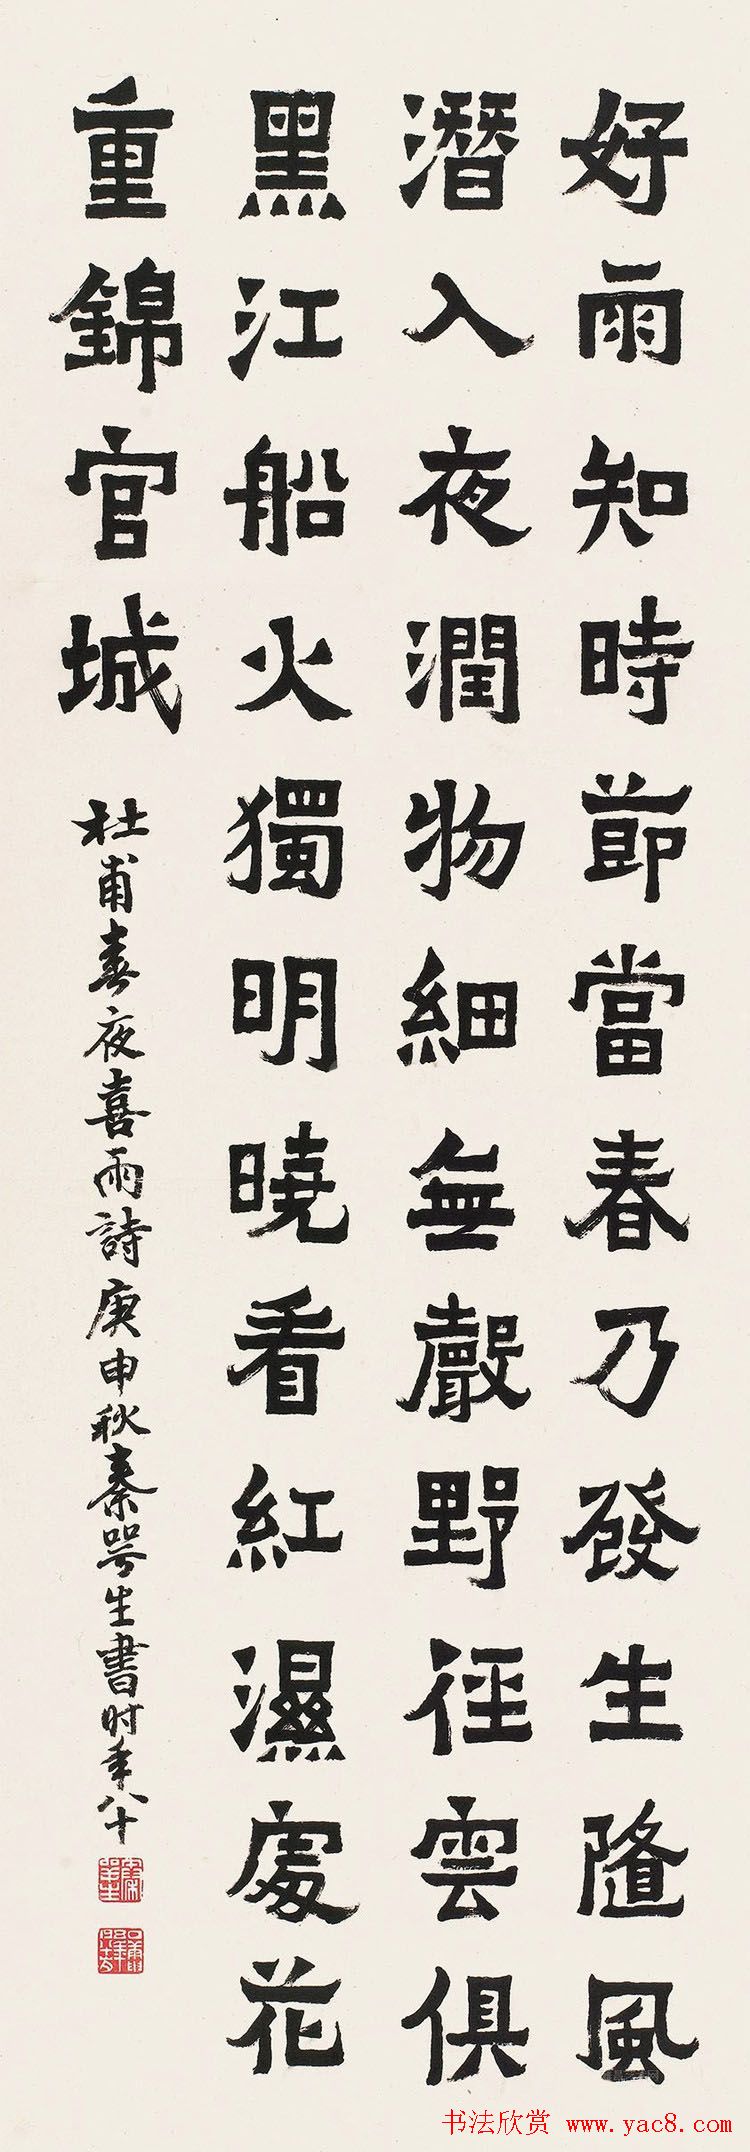 好雨知時節當春乃發生隨風
潛入夜潤物細無聲野徑雲俱
黑江船火獨明曉看紅濕處花
重錦官城
杜甫春夜喜雨詩庚申秋秦咢生書时年八十
书法欣赏 www.yac8.com